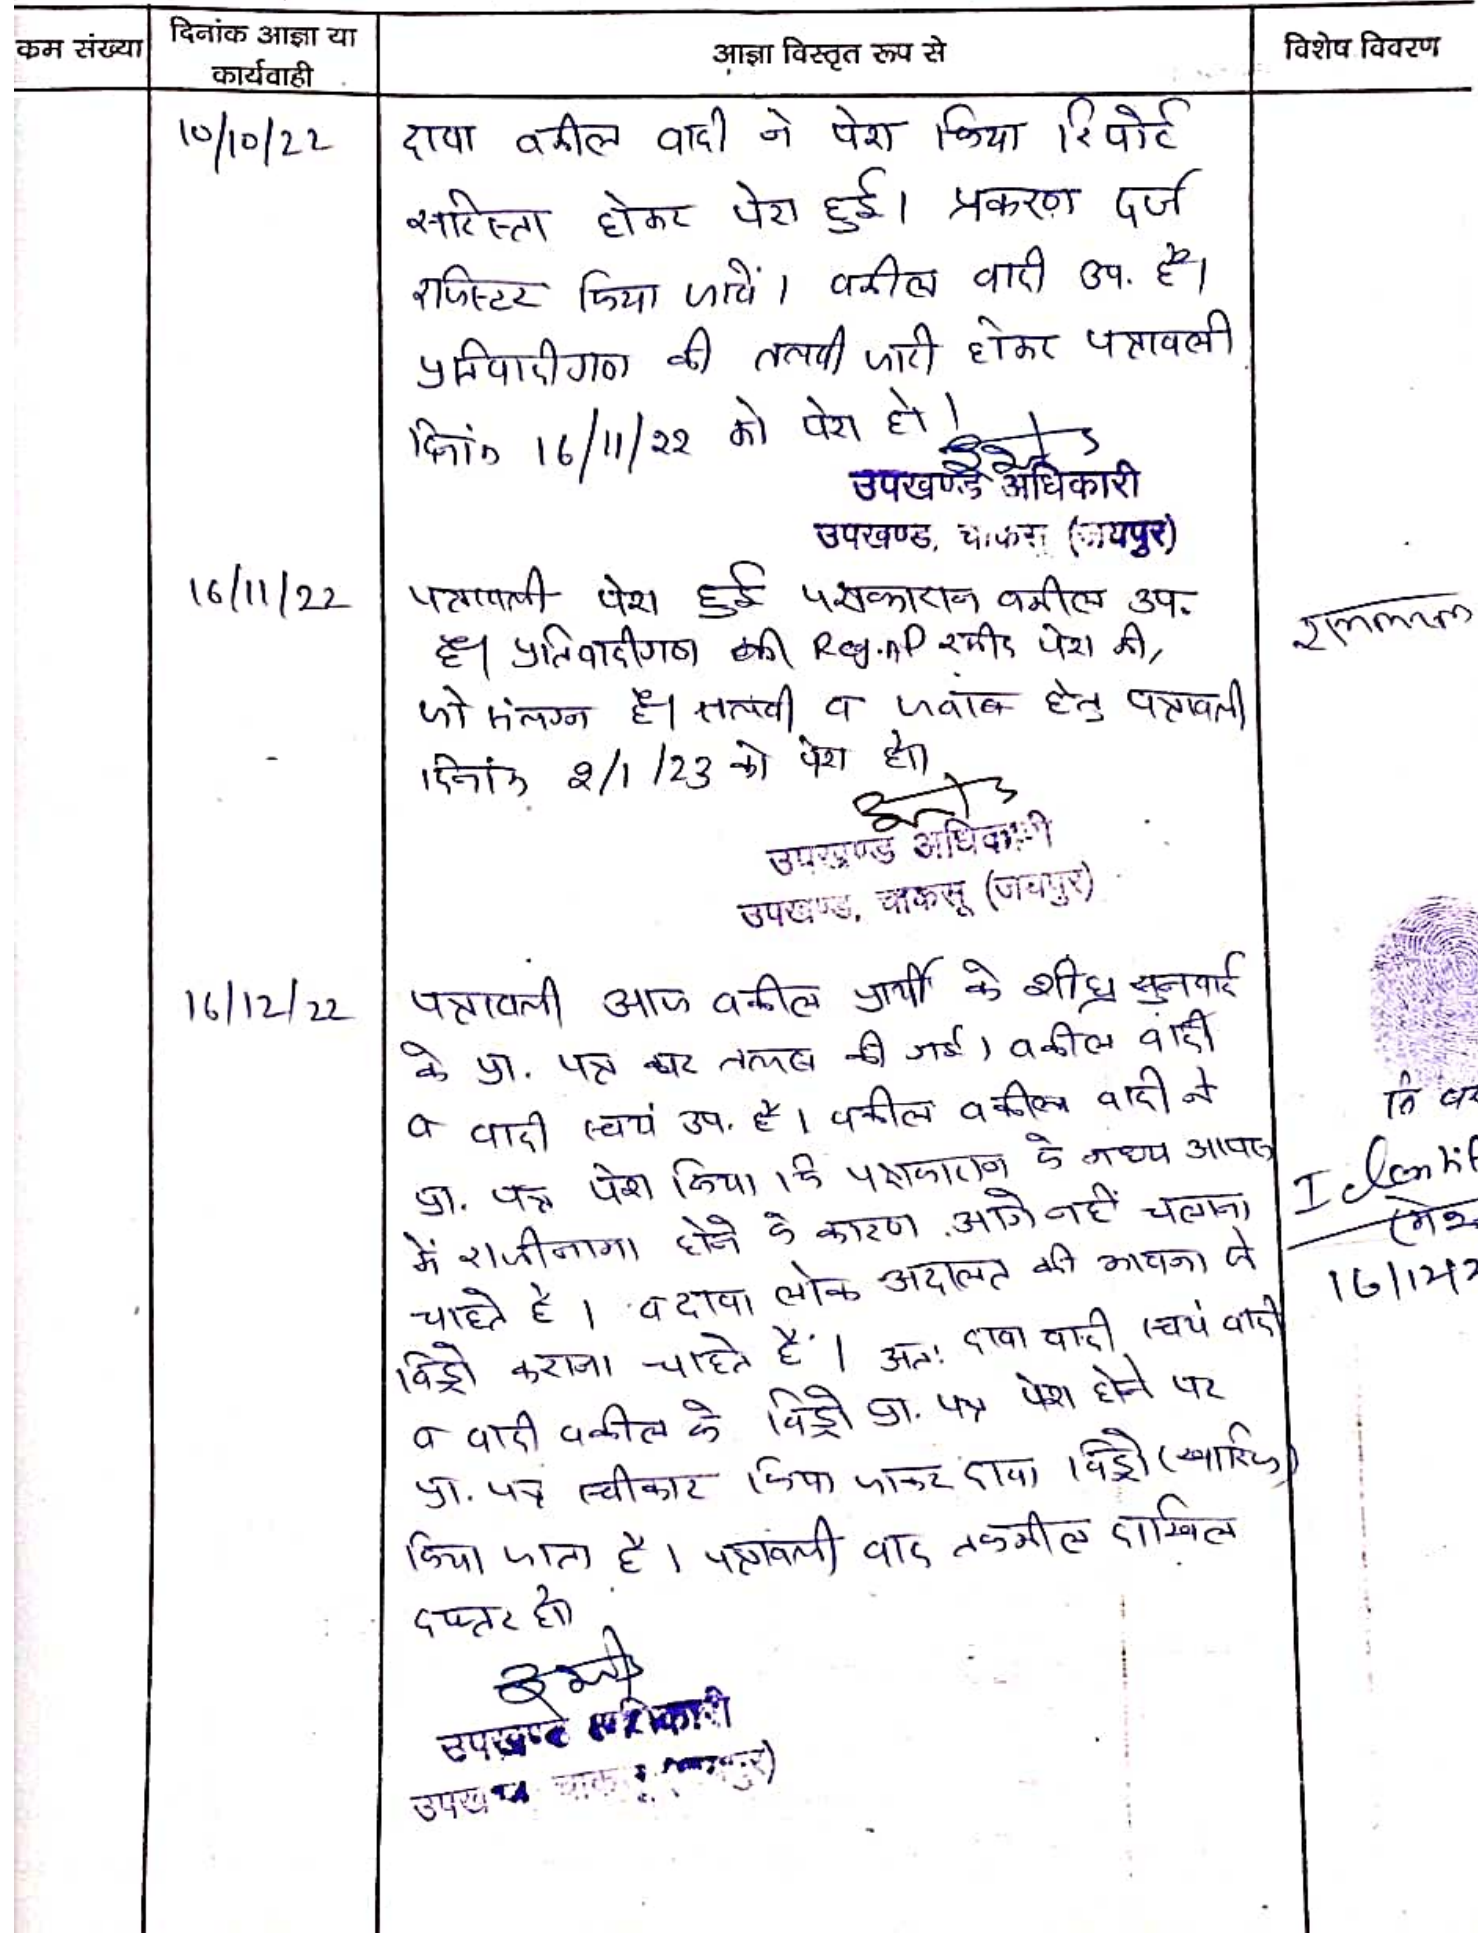 क्रम संख्या
दिनांक आज्ञा या
कार्यवाही
आज्ञा विस्तृत रूप से
विशेष विवरण
10/10/22
दावा वकील वादी ने पेश किया रिपोर्ट
सरिस्ता होकर पेश हुई। प्रकरण दर्ज
रजिस्टर किया जावें। वकील वादी उप. है।
प्रतिवादीगण की तलबी जारी होकर पत्रावली
दिनांक 16/11/22 को पेश हो।
उपखण्ड अधिकारी
उपखण्ड, चाकसू (जयपुर)
16/11/22
पत्रावली पेश हुई पक्षकारान वकील उप.
है। प्रतिवादीगण की Reg. AD रसीद पेश की,
जो संलग्न है। तलबी व जवाब हेतु पत्रावली
दिनांक 2/1/23 को पेश हो।
उपखण्ड अधिकारी
उपखण्ड, चाकसू (जयपुर)
16/12/22
पत्रावली आज वकील प्रार्थी के शीघ्र सुनवाई
के प्रा. पत्र पर तलब की गई। वकील वादी
व वादी स्वयं उप. है। वकील वकील वादी ने
प्रा. पत्र पेश किया कि पक्षकारान के मध्य आपस
में राजीनामा होने के कारण आगे नहीं चलाना
चाहते है। व दावा लोक अदालत की भावना से
विड्रो कराना चाहते हैं। अतः दावा वादी स्वयं वादी
व वादी वकील के विड्रो प्रा. पत्र पेश होने पर
प्रा. पत्र स्वीकार किया जाकर दावा विड्रो (खारिज)
किया जाता है। पत्रावली बाद तकमील दाखिल
दफ्तर हो।
उपखण्ड अधिकारी
उपखण्ड चाकसू (जयपुर)